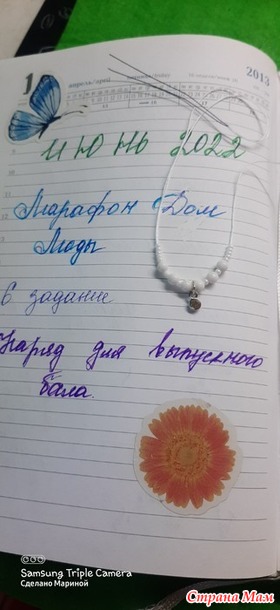 1
2013
ИЮНЬ 2022
Марафон Дом
Моды
6 задание
Наряд для выпускного
бала.
Samsung Triple Camera
Сделано Мариной
Страна Мам